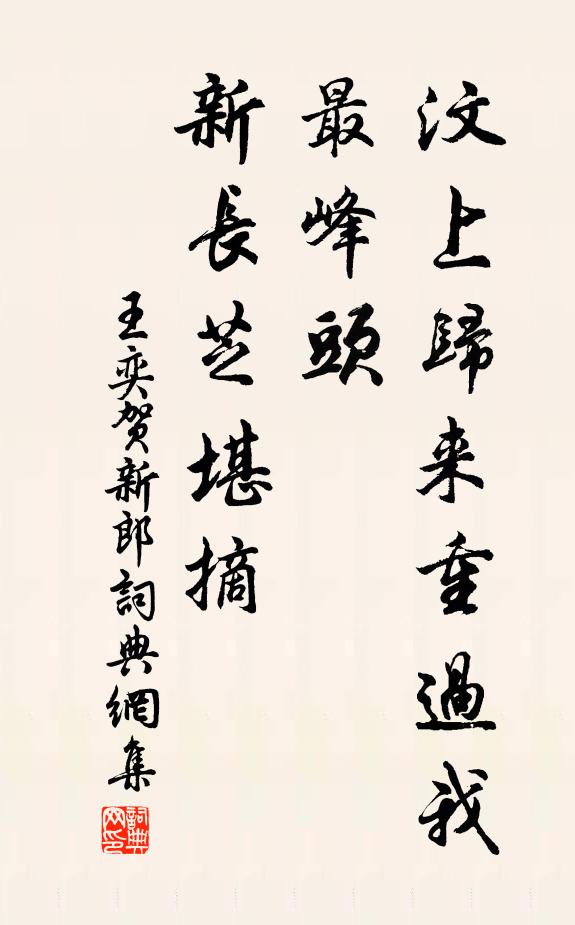 汶上歸来重過我
最峰頭
新長芝堪摘
王奕賀新郎詞典網集
詞典网印